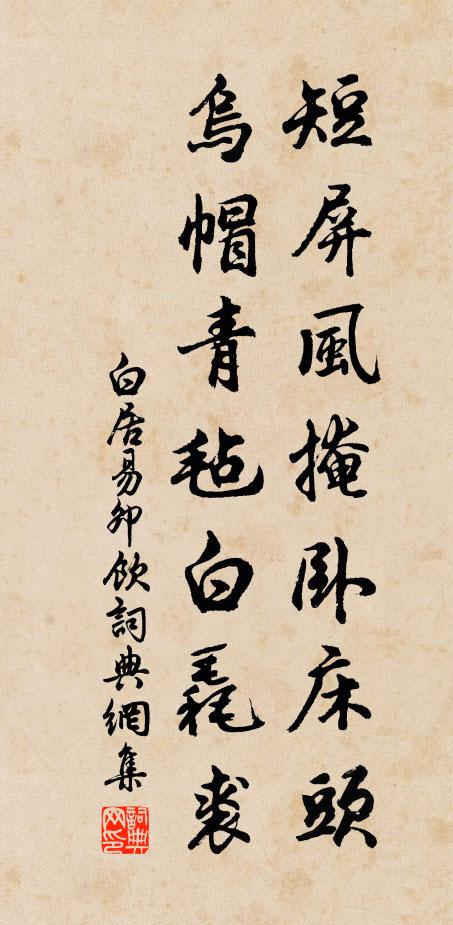 短屏風掩卧床頭
烏帽青毡白毳裘
白居易卯飲詞典網集
詞典網印